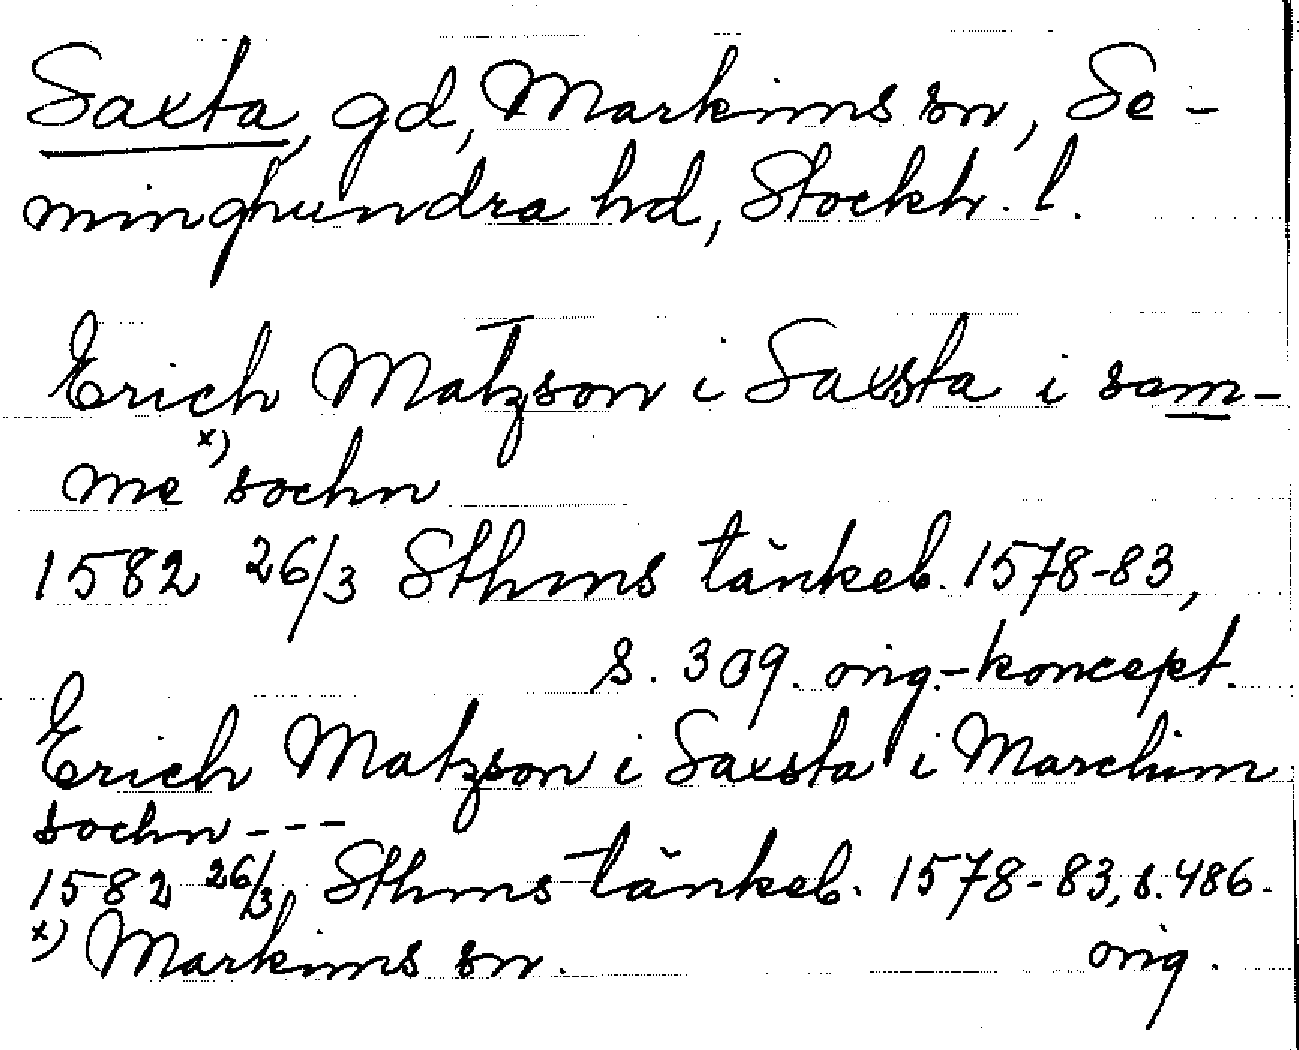 Saxta, gd, Markims sn, Se-
minghundra hd, Stockh. l.
Erich Matzson i Saxsta i sam-
me x) sochn
1582 26/3 Sthms tänkeb. 1578-83,
s. 309. orig.-koncept.
Erich Matzson i Saxsta i Marchim
sochn ---
1582 26/3 Sthms tänkeb. 1578-83, s. 486.
x) Markims sn. orig.